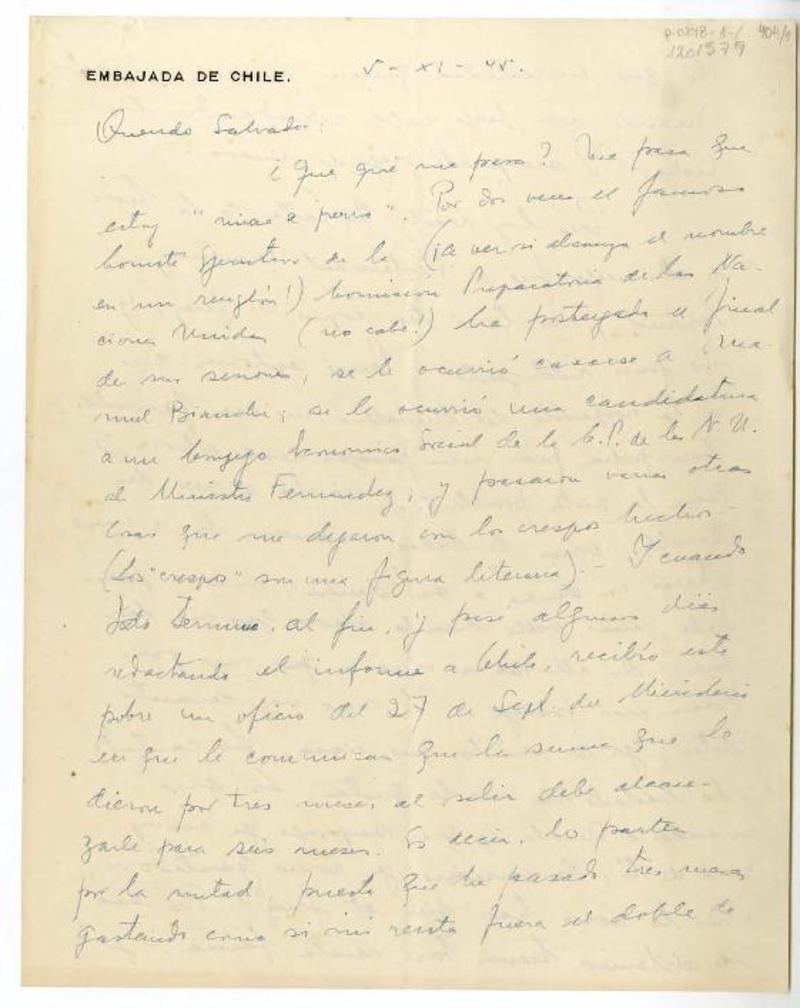 P-0248-1-/ 404/1
1201579
EMBAJADA DE CHILE.
5 - XI - 45.
Querido Salvador:
¿Que qué me pasa? Me pasa que
estoy "miae a perro". Por dos veces el famoso
Comité Ejecutivo de la (¡a ver si alcanza el nombre
en un renglón!) Comisión Preparatoria de las Na-
ciones Unidas (¡no cabe!) ha postergado el final
de sus sesiones; se le ocurrió casarse a Ma-
nuel Bianchi; se le ocurrió una candidatura
a un Consejo Económico Social de la C.P. de las N.U.
al Ministro Fernández, y pasaron varias otras
cosas que me dejaron con los crespos hechos -
(Los "crespos" son una figura literaria). - Y cuando
todo terminó, al fin, y pasé algunos días
redactando el informe a Chile, recibió este
pobre un oficio del 27 de Sept. del Ministerio
en que le comunican que la suma que le
dieron por tres meses al salir debe alcan-
zarle para seis meses. Es decir, lo parten
por la mitad, puesto que he pasado tres meses
gastando como si mi renta fuera el doble de